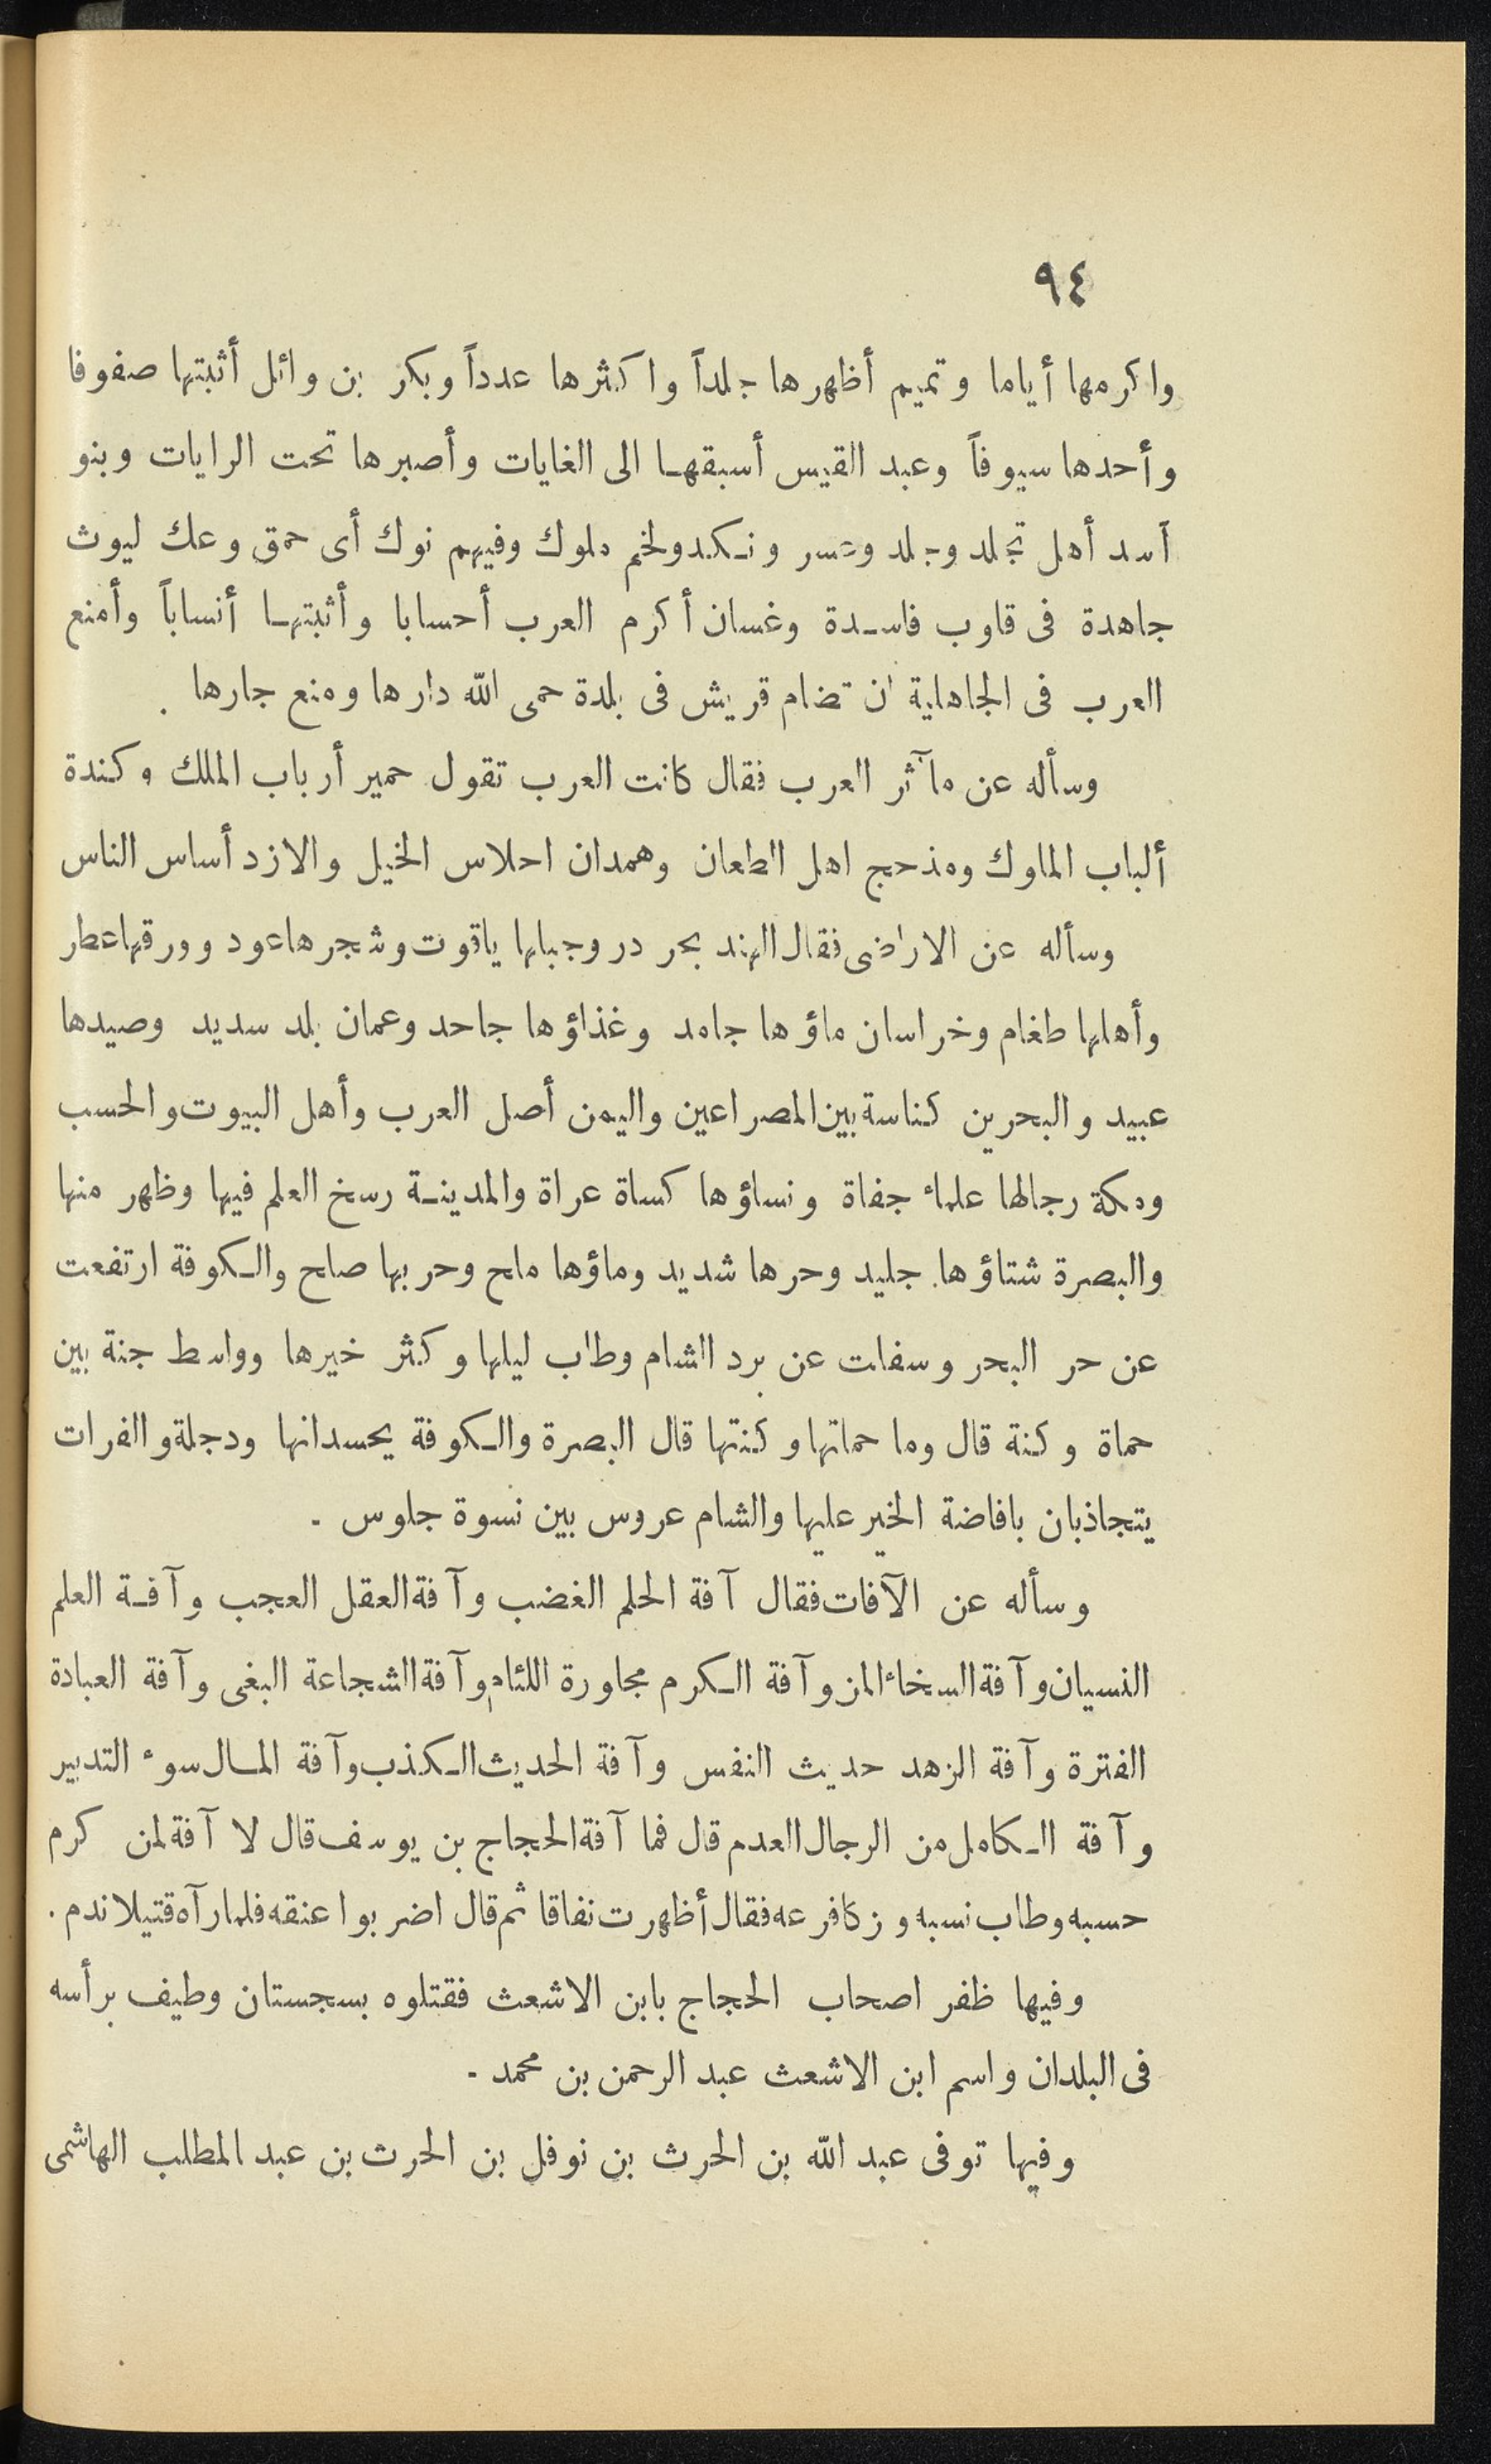 ٩٤
واكرمها أياما وتميم أظهرها جلداً واكثرها عدداً وبكر بن وائل أثبتها صفوفا
وأحدها سيوفاً وعبد القيس أسبقها الى الغايات وأصبرها تحت الرايات وبنو
أسد أهل تجلد وجلد وعسر ونكد ولخم ملوك وفيهم نوك أى حمق وعك ليوث
جاهدة فى قلوب فاسدة وغسان أكرم العرب أحسابا وأثبتها أنساباً وأمنع
العرب فى الجاهلية ان تضام قريش فى بلدة حمى الله دارها ومنع جارها .
وسأله عن مآثر العرب فقال كانت العرب تقول حمير أرباب الملك وكندة
ألباب الملوك ومذحج اهل الطعان وهمدان احلاس الخيل والازد أساس الناس
وسأله عن الاراضى فقال الهند بحر در وجبلها ياقوت وشجرها عود وورقها عطر
وأهلها طغام وخراسان ماؤها جامد وغذاؤها جاحد وعمان بلد سديد وصيدها
عبيد والبحرين كناسة بين المصراعين واليمن أصل العرب وأهل البيوت والحسب
ومكة رجالها علماء جفاة ونساؤها كساة عراة والمدينة رسخ العلم فيها وظهر منها
والبصرة شتاؤها جليد وحرها شديد وماؤها ملح وحربها صلح والكوفة ارتفعت
عن حر البحر وسفلت عن برد الشام وطاب ليلها وكثر خيرها وواسط جنة بين
حماة وكنة قال وما حماتها وكنتها قال البصرة والكوفة يحسدانها ودجلة والفرات
يتجاذبان بافاضة الخير عليها والشام عروس بين نسوة جلوس .
وسأله عن الآفات فقال آفة الحلم الغضب وآفة العقل العجب وآفة العلم
النسيان وآفة السخاء المن وآفة الكرم مجاورة اللئام وآفة الشجاعة البغى وآفة العبادة
الفترة وآفة الزهد حديث النفس وآفة الحديث الكذب وآفة المال سوء التدبير
وآفة الكامل من الرجال العدم قال فما آفة الحجاج بن يوسف قال لا آفة لمن كرم
حسبه وطاب نسبه وزكا فرعه فقال أظهرت نفاقا ثم قال اضربوا عنقه فلما رآه قتيلا ندم .
وفيها ظفر اصحاب الحجاج بابن الاشعث فقتلوه بسجستان وطيف برأسه
فى البلدان واسم ابن الاشعث عبد الرحمن بن محمد .
وفيها توفى عبد الله بن الحرث بن نوفل بن الحرث بن عبد المطلب الهاشمى